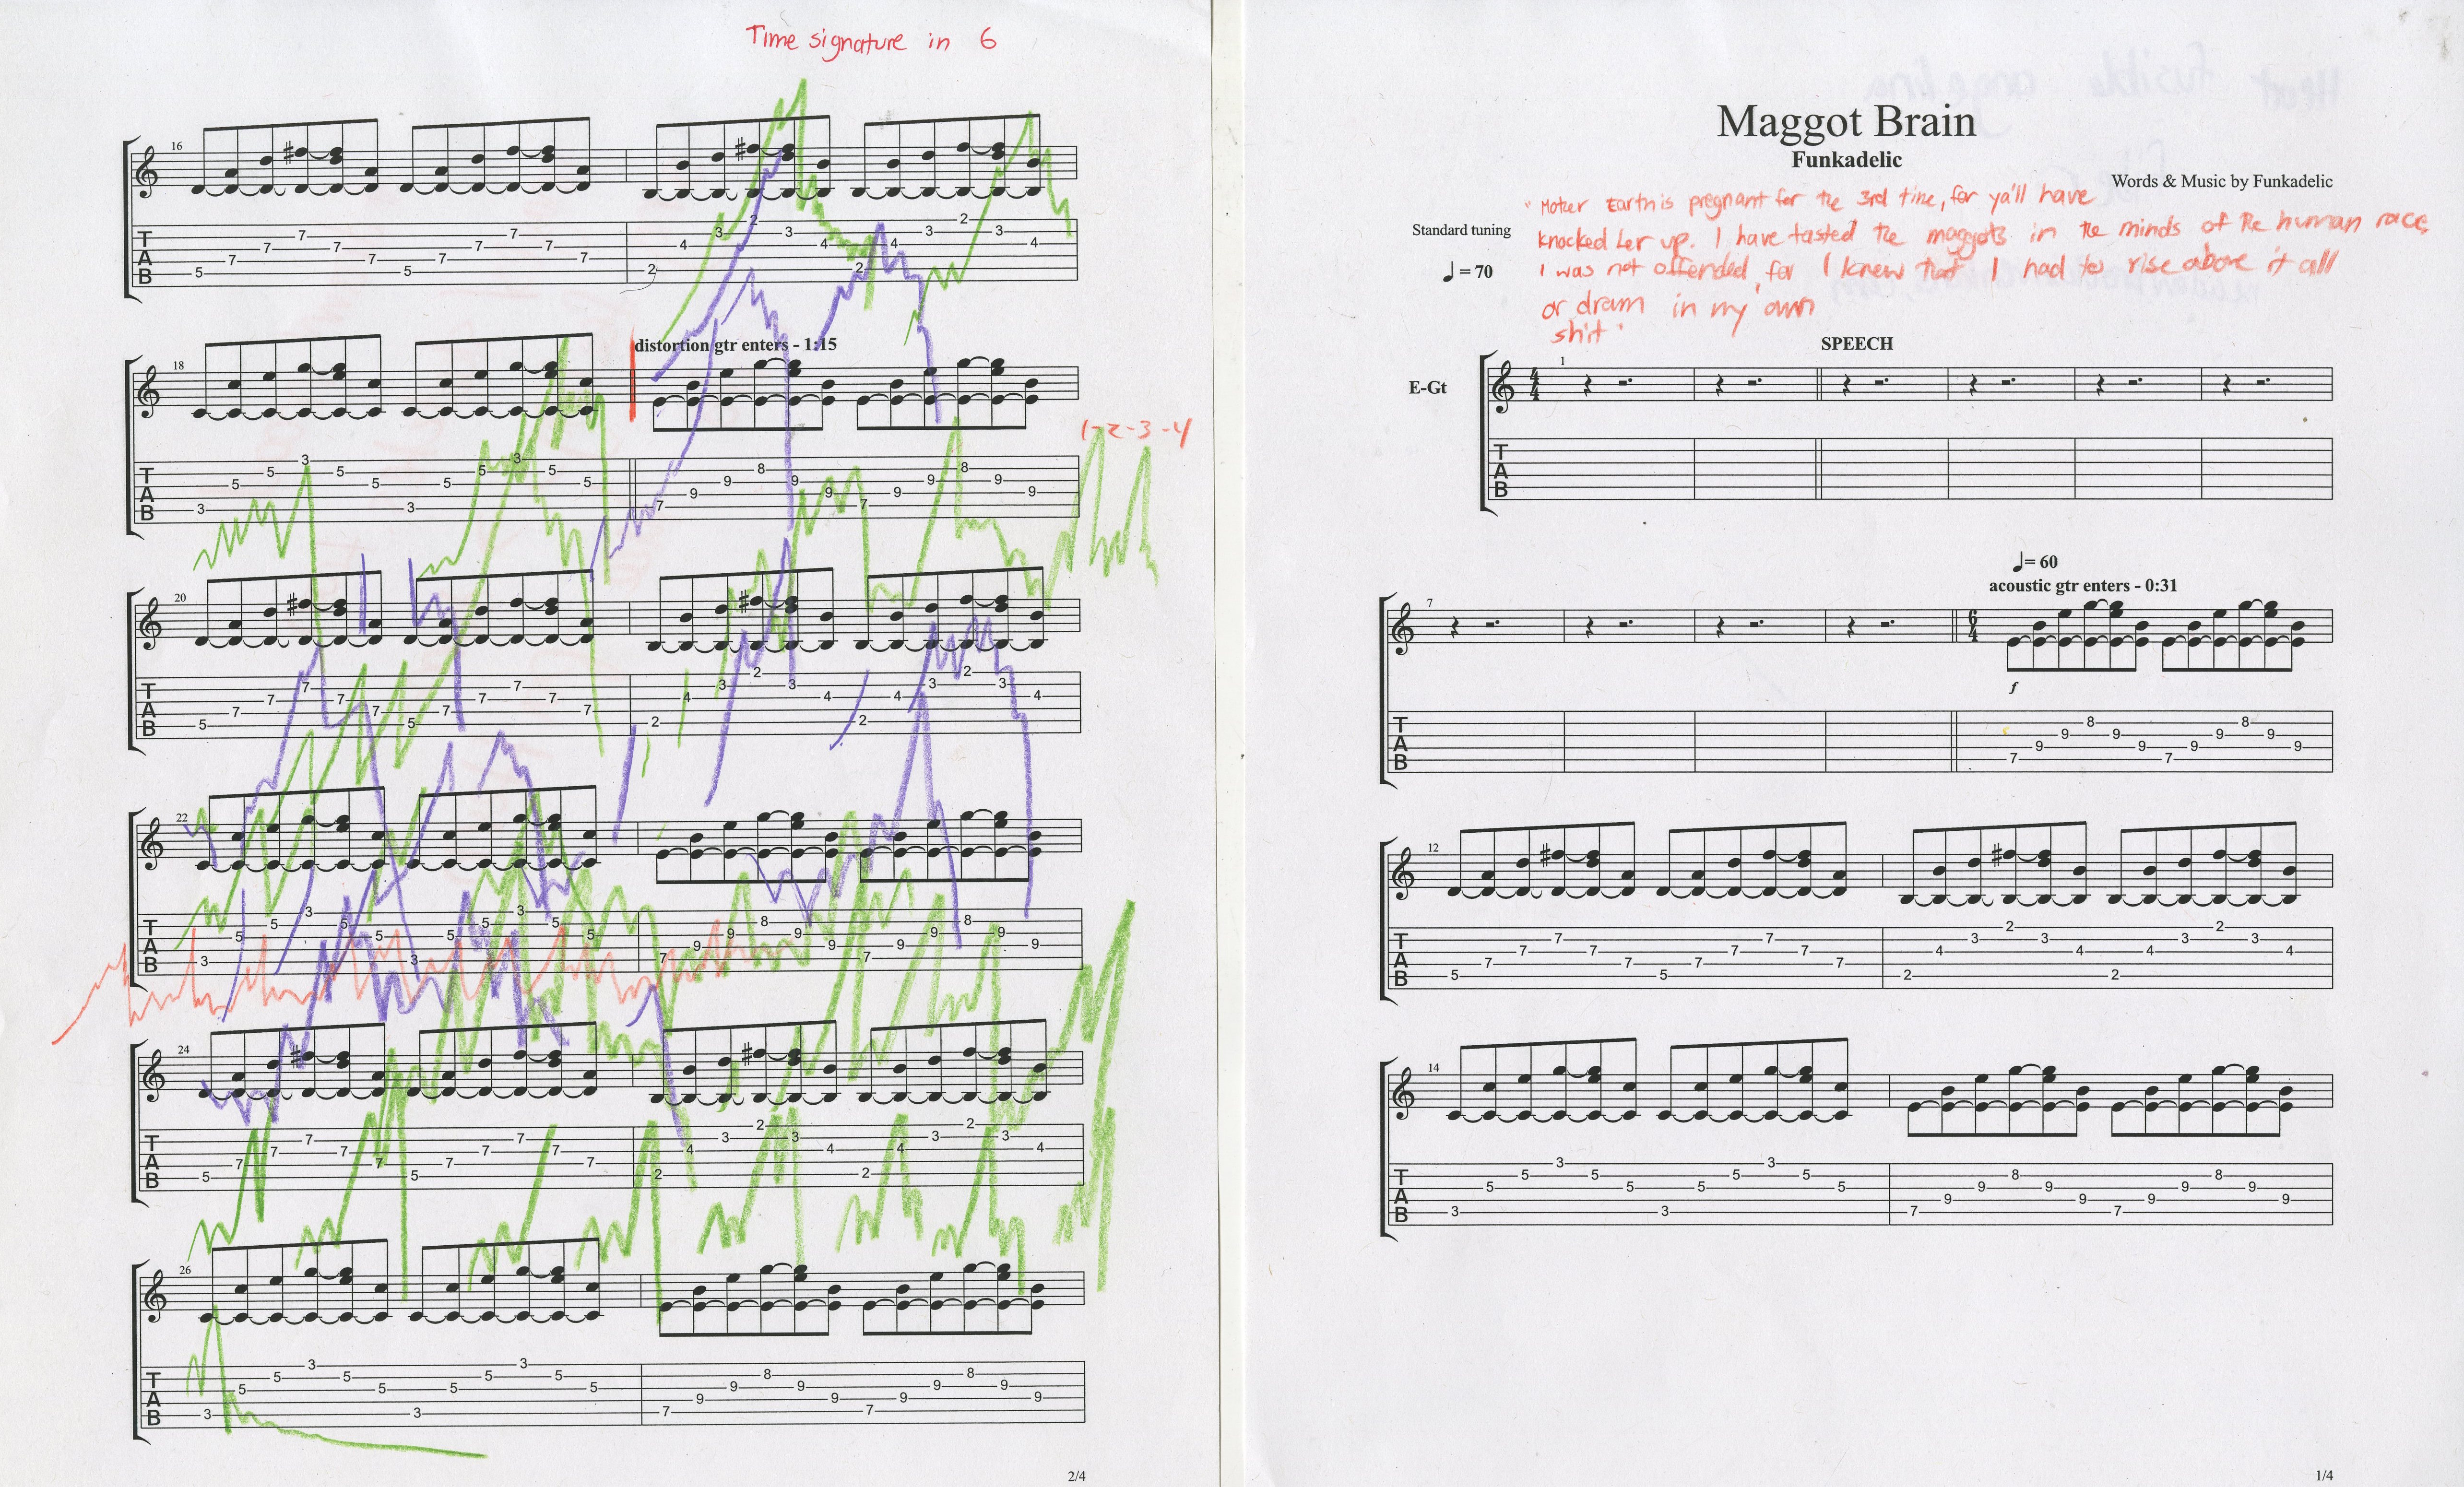 Time signature in 6
16
TAB
5 7 7 7 7 7 5 7 7 7 7 7 2 4 3 2 3 4 2 4 3 2 3 4
18
distortion gtr enters - 1:15
1-2-3-4
TAB
3 5 5 3 5 5 3 5 5 3 5 5 7 9 9 8 9 9 7 9 9 8 9 9
20
TAB
5 7 7 7 7 7 5 7 7 7 7 7 2 4 3 2 3 4 2 4 3 2 3 4
22
TAB
3 5 5 3 5 5 3 5 5 3 5 5 7 9 9 8 9 9 7 9 9 8 9 9
24
TAB
5 7 7 7 7 7 5 7 7 7 7 7 2 4 3 2 3 4 2 4 3 2 3 4
26
TAB
3 5 5 3 5 5 3 5 5 3 5 5 7 9 9 8 9 9 7 9 9 8 9 9
2/4
Maggot Brain
Funkadelic
Words & Music by Funkadelic
"Mother Earth is pregnant for the 3rd time, for ya'll have
Standard tuning
knocked her up. I have tasted the maggots in the minds of the human race,
I was not offended, for I knew that I had to rise above it all
= 70
or drown in my own
shit"
SPEECH
E-Gt
4/4
1
TAB
= 60
acoustic gtr enters - 0:31
7
6/4
f
TAB
7 9 9 8 9 9 7 9 9 8 9 9
12
TAB
5 7 7 7 7 7 5 7 7 7 7 7 2 4 3 2 3 4 2 4 3 2 3 4
14
TAB
3 5 5 3 5 5 3 5 5 3 5 5 7 9 9 8 9 9 7 9 9 8 9 9
1/4